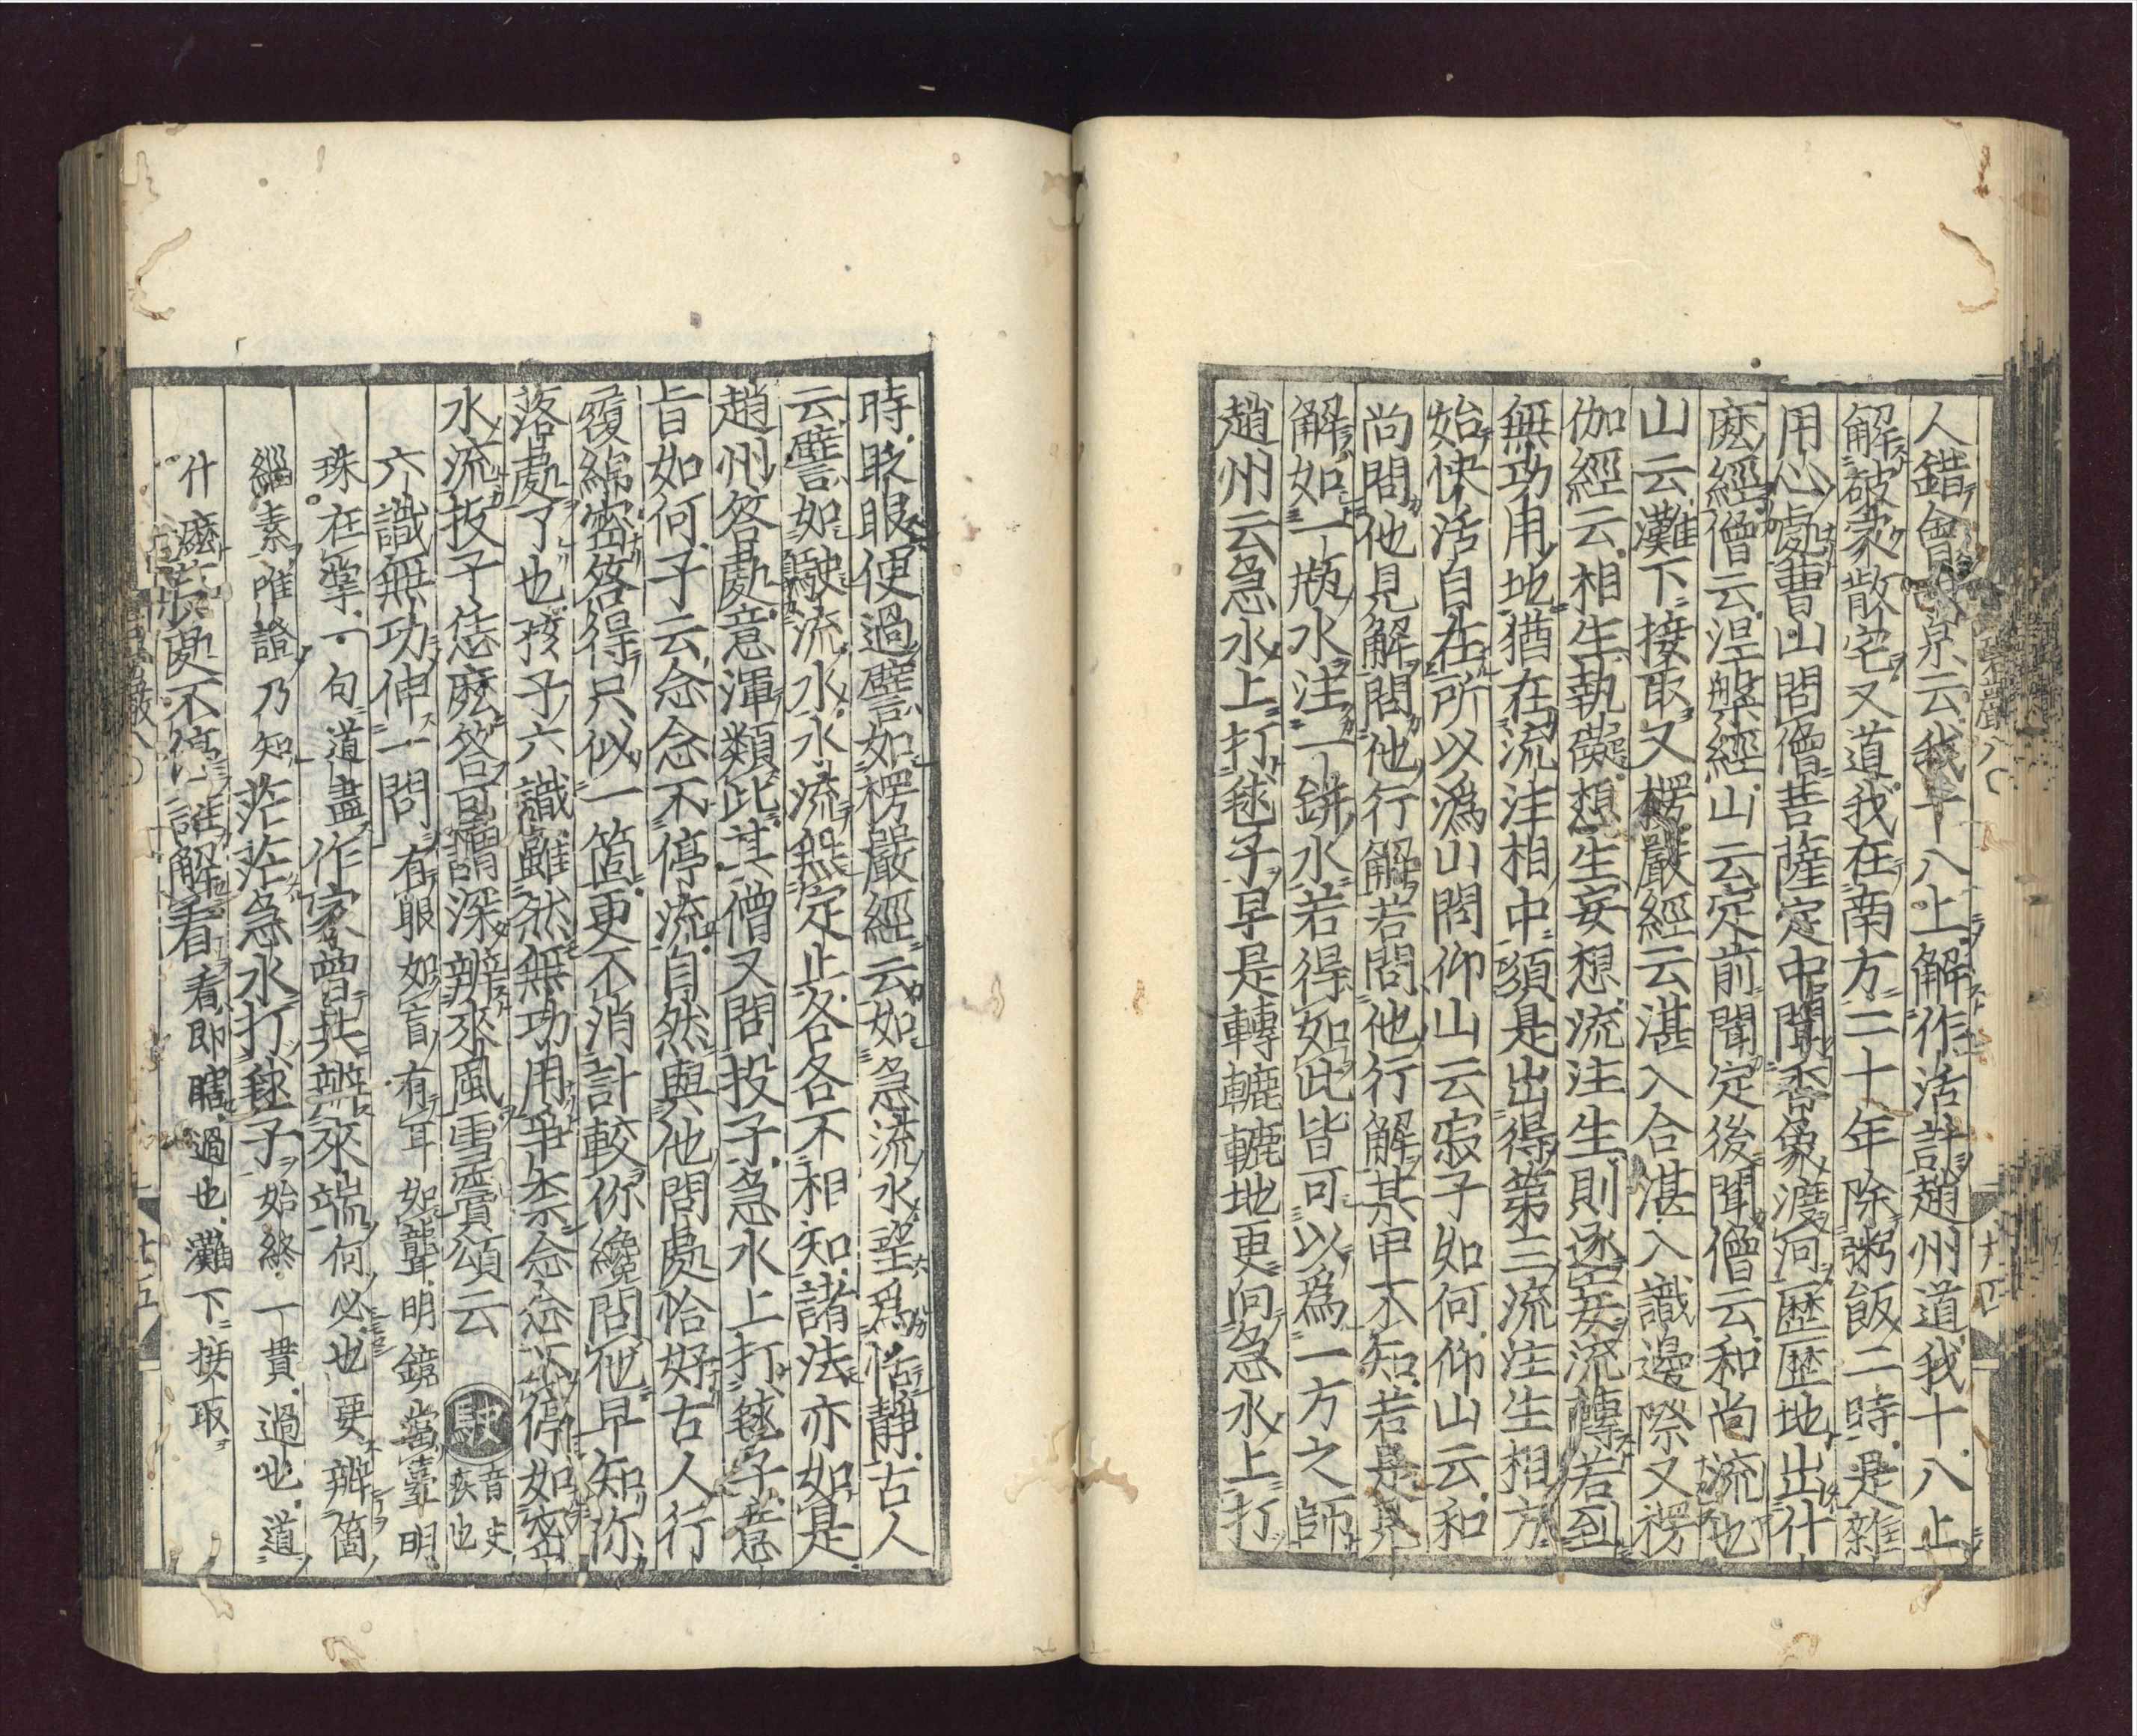 人錯會。南泉云我十八上解作活計趙州道我十八上
解破家散宅又道我在南方二十年除粥飯二時是雜
用心處曹山問僧菩薩定中聞香象渡河歷歷地出什
麼經僧云涅槃經山云定前聞定後聞僧云和尚流也
山云灘下接取又楞嚴經云湛入合湛入識邊際又楞
伽經云相生執礙想生妄想流注生則逐妄流轉若到
無功用地猶在流注相中須是出得第三流注生相方
始快活自在所以溈山問仰山云寂子如何仰山云和
尚問他見解問他行解若問他行解某甲不知若是見
解如一瓶水注一缾水若得如此皆可以為一方之師
趙州云急水上打毬子早是轉轆轆地更向急水上打
時眨眼便過譬如楞嚴經云如急流水望為恬靜古人
云譬如駛流水水流無定止各各不相知諸法亦如是
趙州答處意渾類此其僧又問投子急水上打毬子意
旨如何子云念念不停流自然與他問處恰好古人行
履綿密答得只似一箇更不消計較你纔問他早知你
落處了也孩子六識雖然無功用爭奈念念不停如密
水流投子恁麼答可謂深辨來風雪竇頌云 駛 音史疾也
六識無功伸一問 有眼如盲有耳如聾明鏡當臺明
珠在掌一句道盡 作家曾共辨來端 何必也要辨箇
緇素唯證乃知 茫茫急水打毬子 始終一貫過也道
什麼 落處不停誰解看 看即瞎過也灘下接取